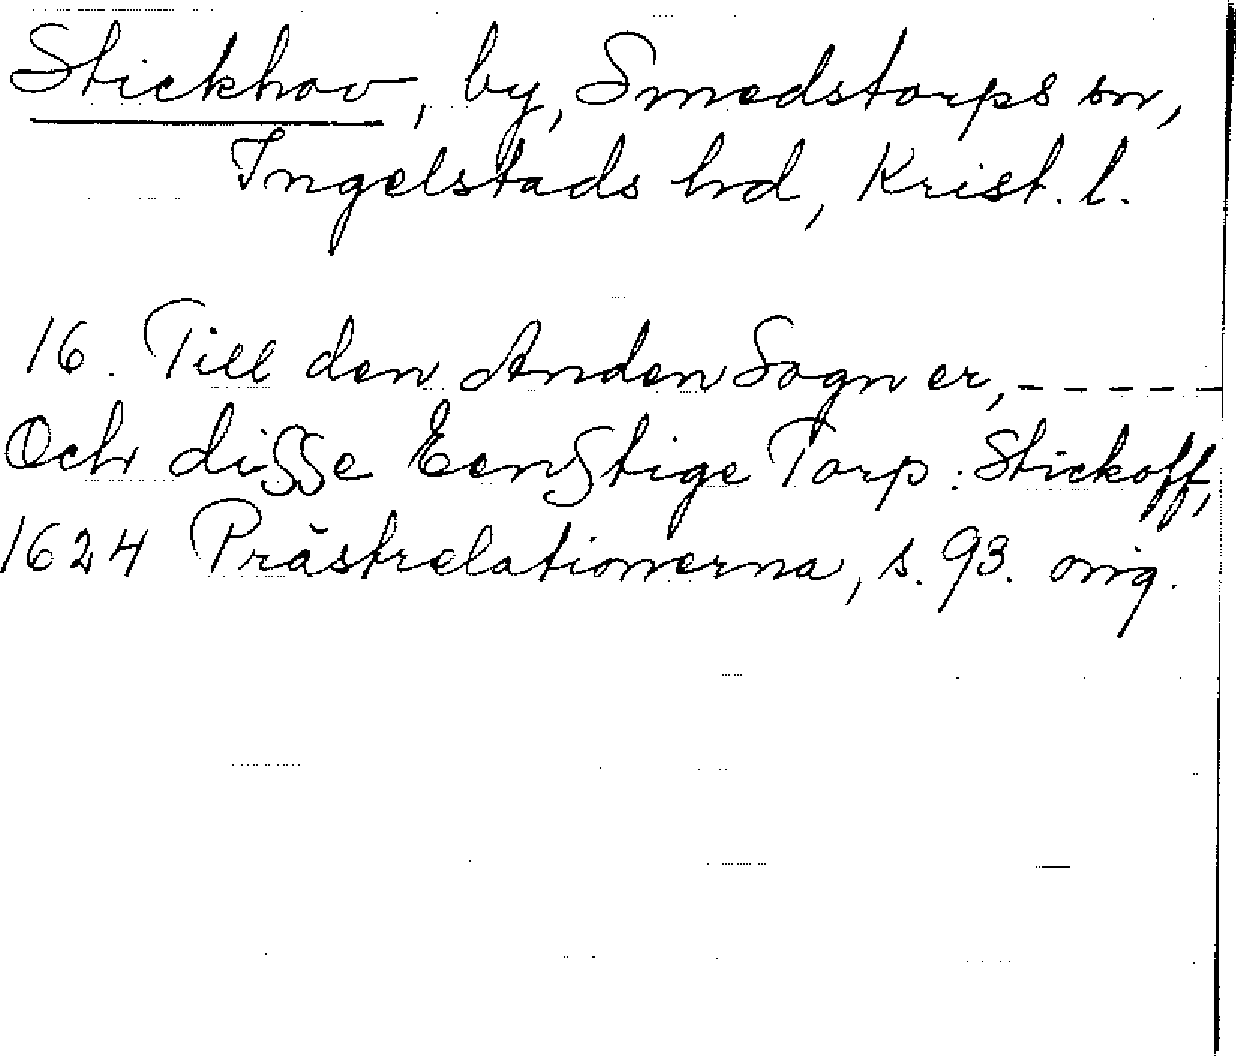 Stickhov, by, Smedstorps sn,
Ingelstads hd, Krist. l.
16. Till den Anden Sogn er, - - - - -
Och disse Eenstige Torp: Stickoff,
1624 Prästrelationerna, s. 93. orig.